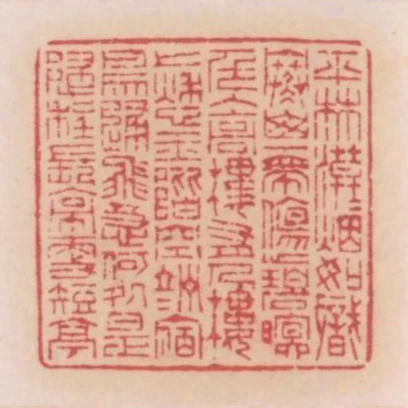 平林漠漠煙如織
寒山一帶傷心碧暝
色入高樓有人樓
上愁玉階空佇立宿
鳥歸飛急何處是
歸程長亭更短亭